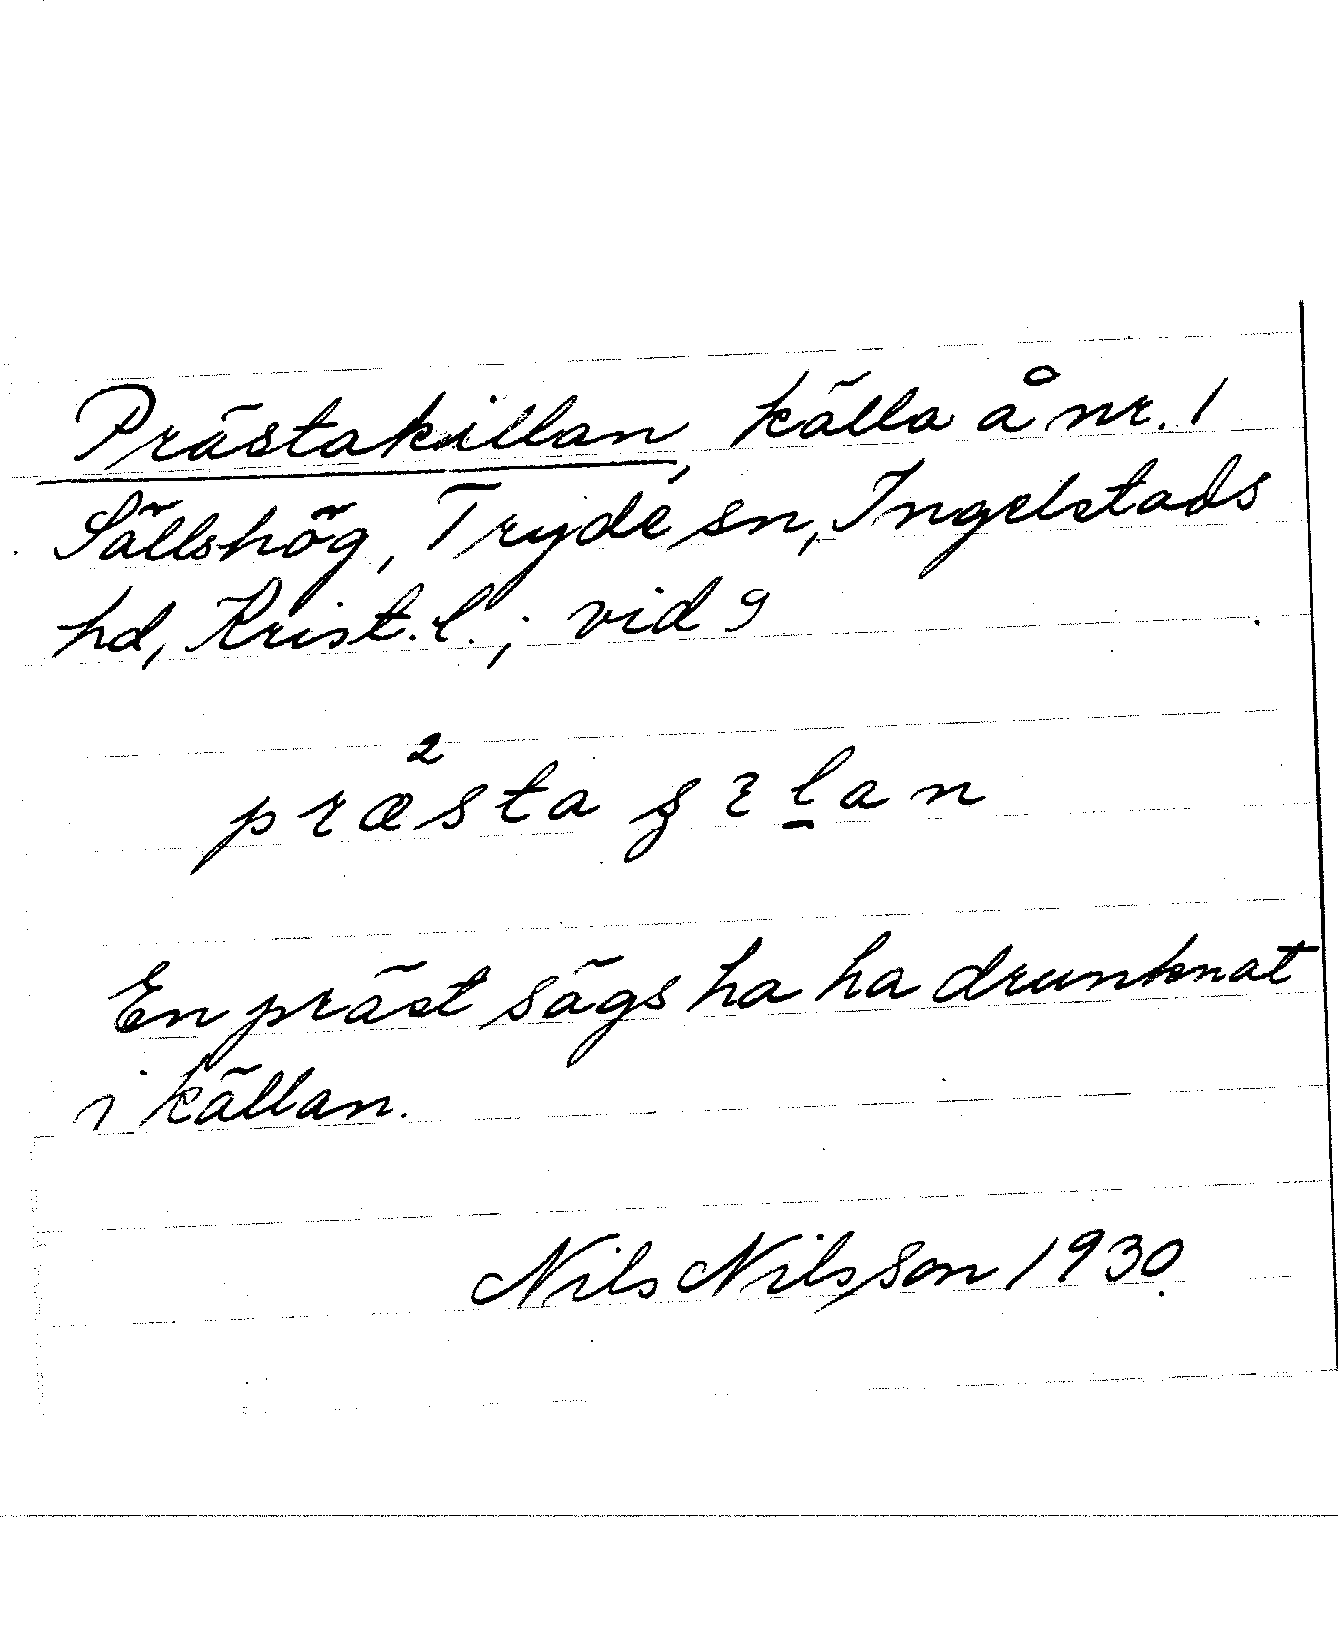 Prästakillan, källa å nr. 1
Sällshög, Tryde sn, Ingelstads
hd, Krist. l.; vid 9
præ²sta ʂɿḻan
En präst sägs ha ha drunknat
i källan.
Nils Nilsson 1930.